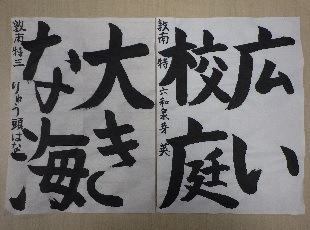 広い
校庭
敦南 特 六 和泉芽英
大き
な海
敦南特三 りゅう頭はな